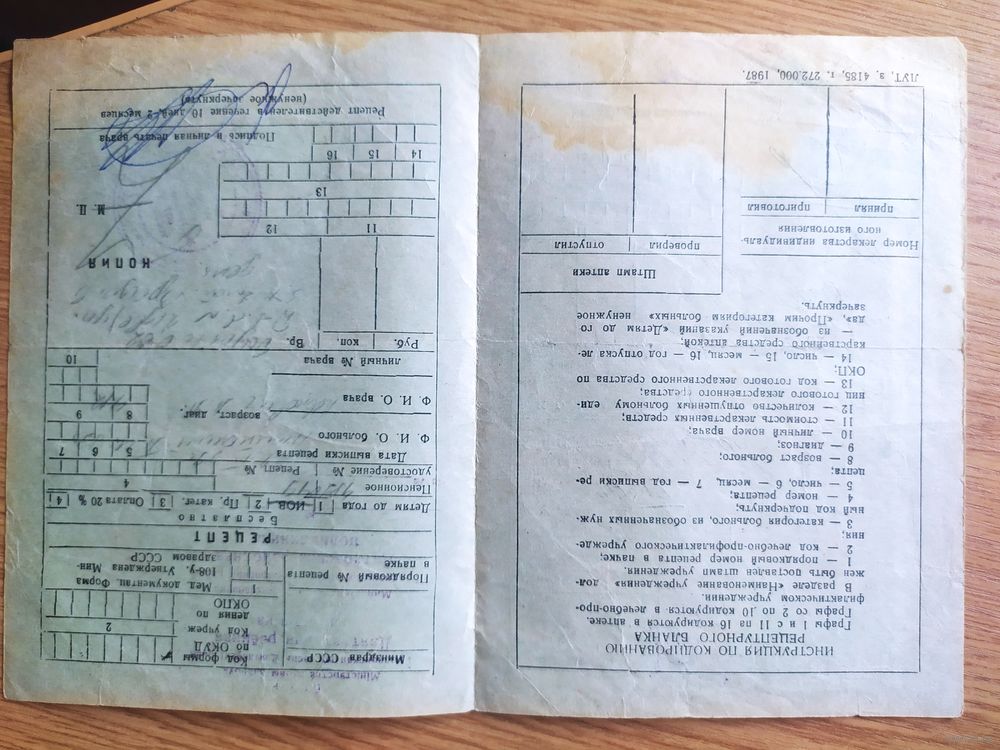 ИНСТРУКЦИЯ ПО КОДИРОВАНИЮ
РЕЦЕПТУРНОГО БЛАНКА
Графы 1 и с 11 по 16 кодируются в аптеке.
Графы со 2 по 10 кодируются в лечебно-про-
филактическом учреждении.
В разделе «Наименование учреждения» дол-
жен быть поставлен штамп учреждения.
1 — порядковый номер рецепта в пачке;
2 — код лечебно-профилактического учрежде-
ния;
3 — категория больного, из обозначенных нуж-
ный код подчеркнуть;
4 — номер рецепта;
5 — число, 6 — месяц, 7 — год выписки ре-
цепта;
8 — возраст больного;
9 — диагноз;
10 — личный номер врача;
11 — стоимость лекарственных средств;
12 — количество отпущенных больному еди-
ниц готового лекарственного средства;
13 — код готового лекарственного средства по
ОКП;
14 — число, 15 — месяц, 16 — год отпуска ле-
карственного средства аптекой;
— из обозначений указаний «Детям до го
да», «Прочим категориям больных» ненужное
зачеркнуть.
Штамп аптеки
проверил отпустил
Номер лекарства индивидуаль-
ного изготовления
принял приготовил
ЛУТ, з. 4185, т. 272.000, 1987.
Минздрав СССР
Код формы
по ОКУД
Код учреж
дения по
ОКПО
2
Порядковый № рецепта
в пачке
1
Мед. документац. Форма
108-у. Утверждена Мин-
здравом СССР
РЕЦЕПТ
Бесплатно
Детям до года 1 ИОВ 2 Пр. катег. 3 Оплата 20% 4
Пенсионное
удостоверение № Рецепт №
4
Дата выписки рецепта
5 6 7
Ф. И. О. больного
возраст, диаг.
8 9
Ф. И. О. врача
личный № врача
10
Руб. коп. Вр.
КОПИЯ
11 12
М. П.
13
14 15 16
Подпись и личная печать врача
Рецепт действителен в течение 10 дней, 2 месяцев
(ненужное зачеркнуто)